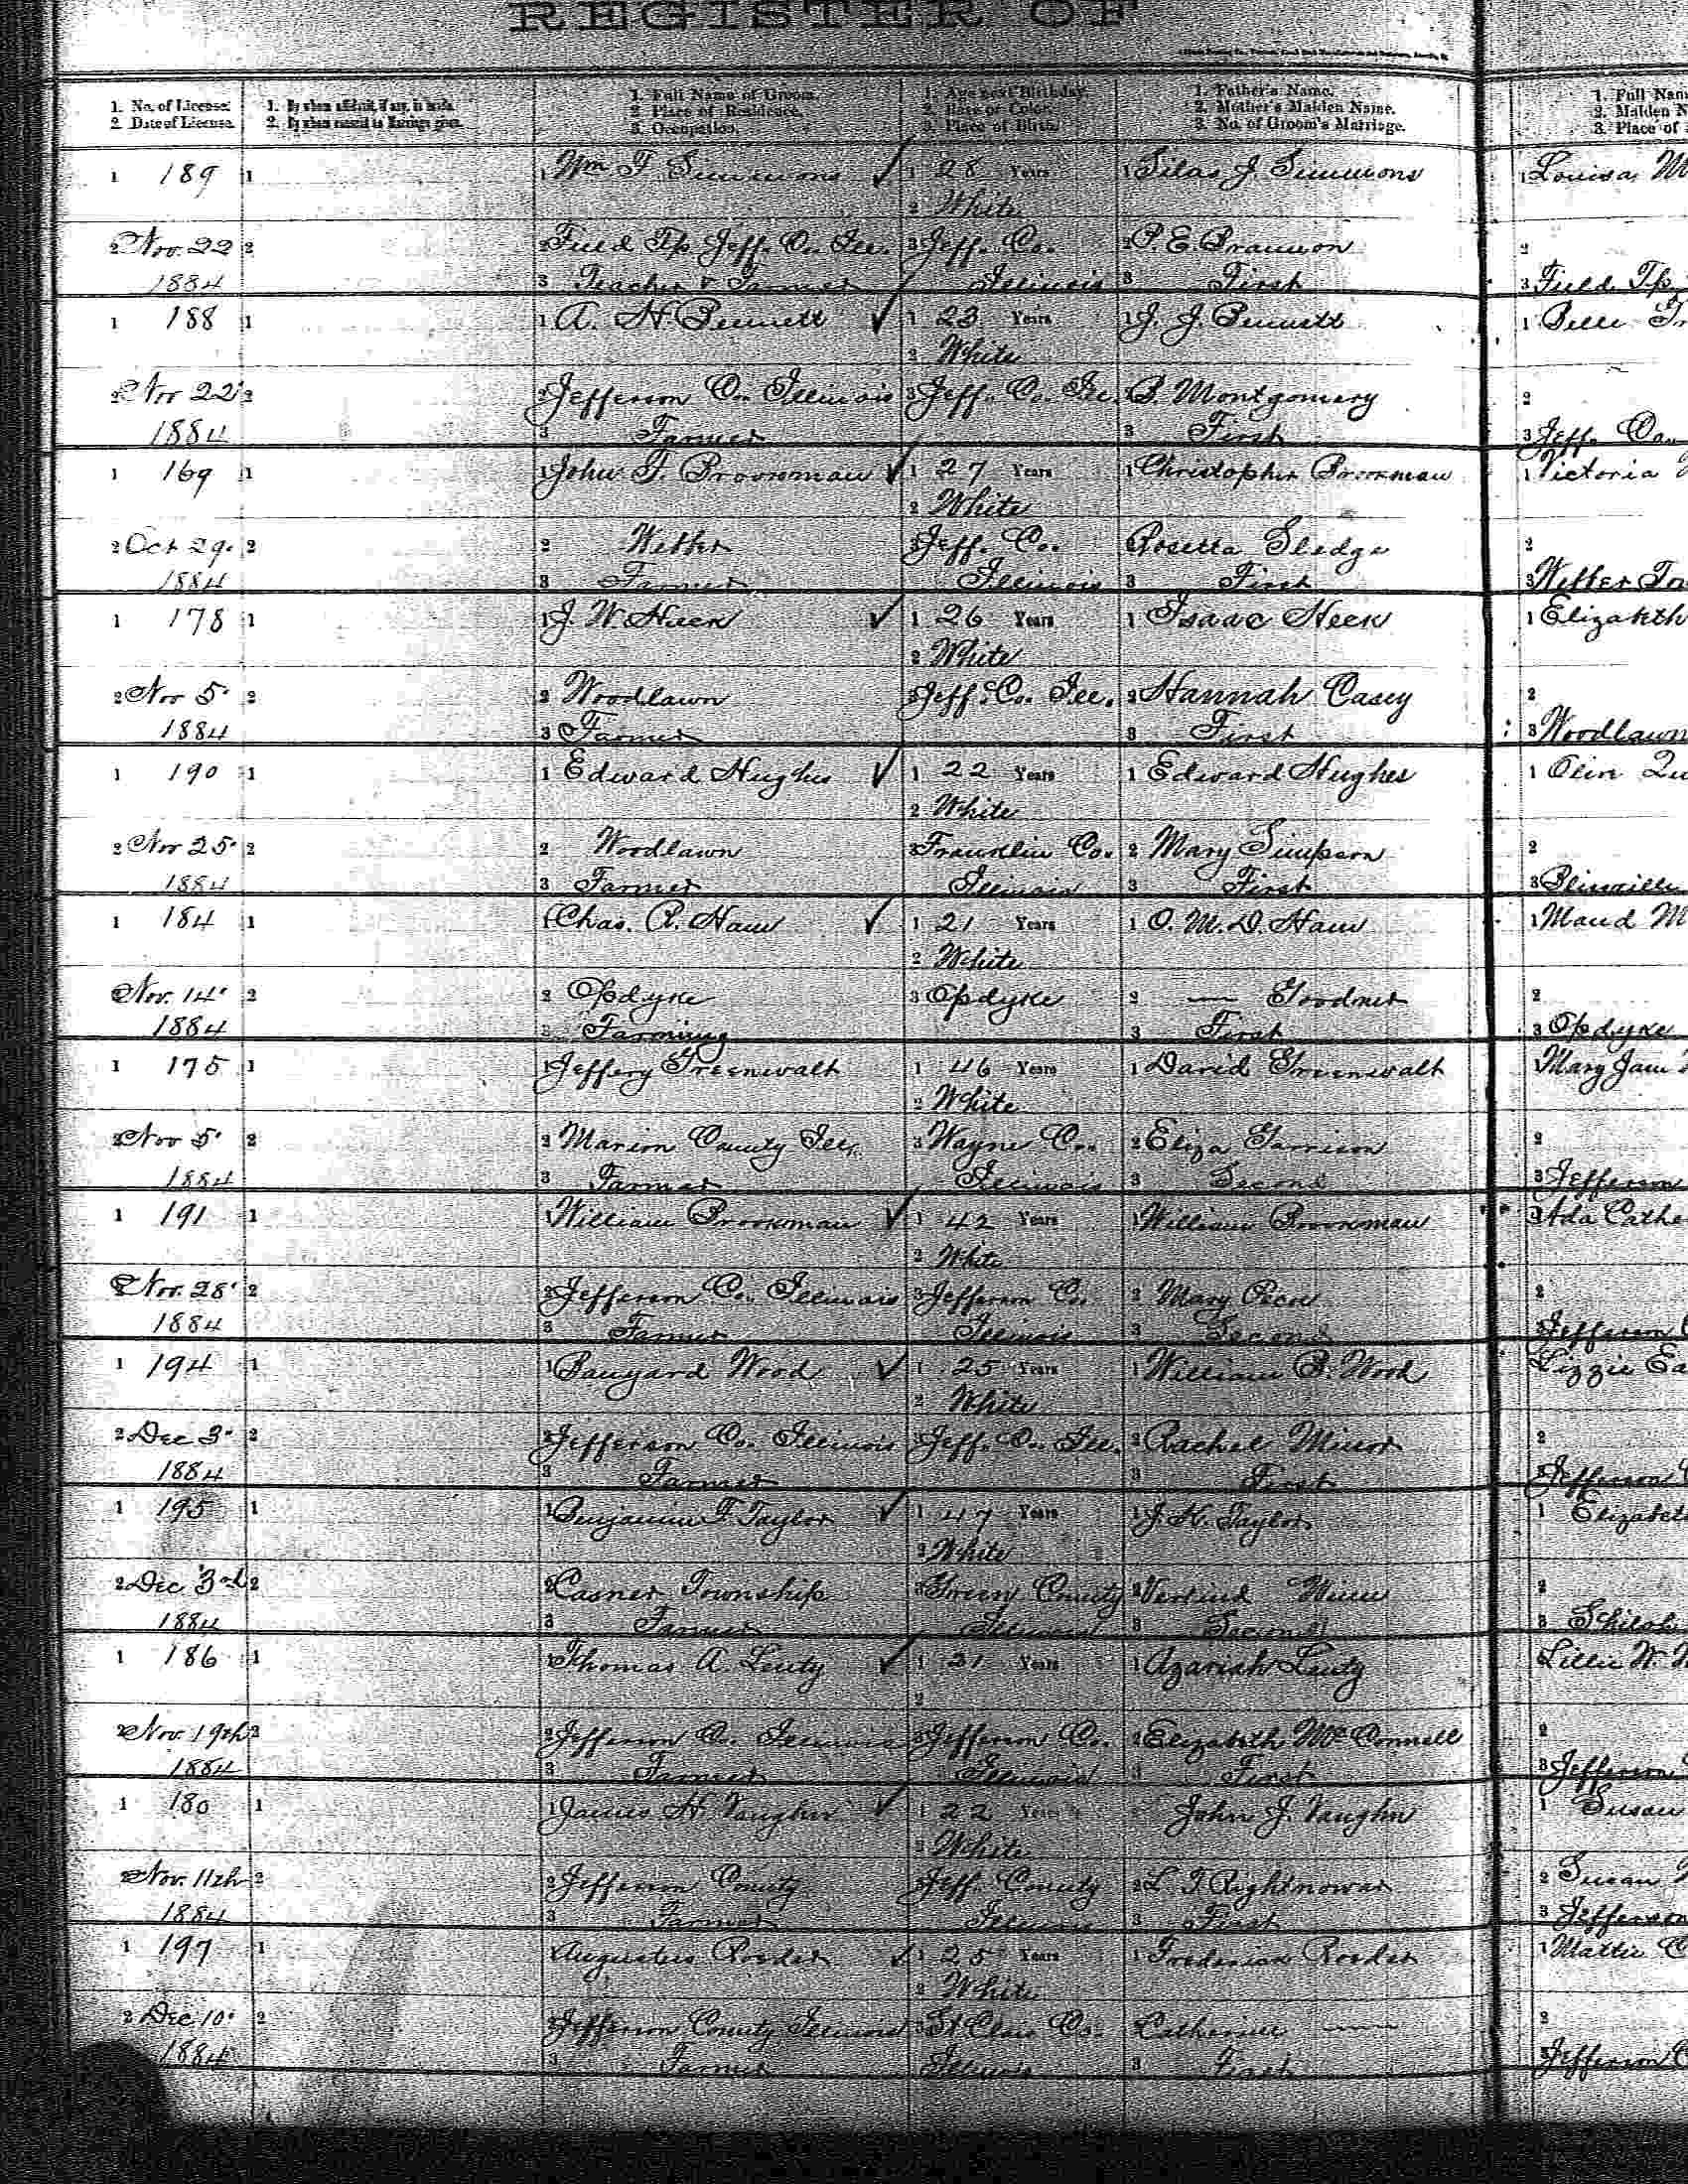 REGISTER OF
1. No. of License. 1. By whom affidavit, if any, is made. 1. Full Name of Groom. 1. Age next Birthday. 1. Father's Name. 1. Full Nam
2. Date of License. 2. Place of Residence. 2. Race or Color. 2. Mother's Maiden Name. 2. Maiden N
3. Occupation. 3. Place of Birth. 3. No. of Groom's Marriage. 3. Place of
1 189 1 1 Wm F Simmons ✓ 1 28 Years 1 Silas J. Simmons 1 Louisa M
2 White
2 Nov. 22 2 2 Field Tp. Jeff. Co. Ill. 3 Jeff. Co. 2 P. E. Brannon 2
1884 3 Teacher & Farmer Illinois 3 First 3 Field Tp
1 188 1 1 A. H. Bennett ✓ 1 23 Years 1 J. J. Bennett 1 Belle
2 White
2 Nov 22 2 2 Jefferson Co. Illinois 3 Jeff. Co. Ill. 2 B. Montgomery 2
1884 3 Farmer 3 First 3 Jeff. Co.
1 169 1 1 John T. Brookman ✓ 1 27 Years 1 Christopher Brookman 1 Victoria
2 White
2 Oct 29. 2 2 Webber 3 Jeff. Co. Rosetta Sledge 2
1884 3 Farmer Illinois 3 First 3 Webber To
1 178 1 1 J. W. Heck ✓ 1 26 Years 1 Isaac Heck 1 Elizabeth
2 White
2 Nov 5 2 2 Woodlawn 3 Jeff. Co. Ill. 2 Hannah Casey 2
1884 3 Farmer 3 First 3 Woodlawn
1 190 1 1 Edward Hughes ✓ 1 22 Years 1 Edward Hughes 1 Olin Qu
2 White
2 Nov 25 2 2 Woodlawn 3 Franklin Co. 2 Mary Simpson 2
1884 3 Farmer Illinois 3 First 3
1 184 1 1 Chas. R. Haw ✓ 1 21 Years 1 O. M. D. Haw 1 Maud M
2 White
Nov. 14 2 2 Opdyke 3 Opdyke 2 — Goodner 2
1884 3 Farming 3 First 3 Opdyke
1 175 1 1 Jeffery Greenwalt 1 46 Years 1 David Greenwalt Mary Jane
2 White
2 Nov 5 2 2 Marion County Ill. 3 Wayne Co. 2 Eliza Garrison 2
1884 3 Farmer Illinois 3 Second 3 Jefferson
1 191 1 1 William Brookman ✓ 1 42 Years 1 William Brookman Ada Cathe
2 White
2 Nov. 28 2 2 Jefferson Co. Illinois 3 Jefferson Co. 2 Mary 2
1884 3 Farmer Illinois 3 Second 3 Jefferson C
1 194 1 1 Wood ✓ 1 25 Years 1 William B. Wood Lizzie Ea
2 White
2 Dec 3 2 2 Jefferson Co. Illinois 3 Jeff. Co. Ill. 2 Rachel Minor 2
1884 3 Farmer 3 First 3 Jefferson C
1 195 1 1 Benjamin F. Taylor ✓ 1 47 Years 1 J. H. Taylor 1 Elizabet
2 White
2 Dec 3rd 2 2 Casner Township 3 Green County 2 2
1884 3 Farmer Illinois 3 Second 3 Shiloh
1 186 1 1 Thomas A. Lenty ✓ 1 21 Years 1 Azariah Lenty Lillie W.
2
2 Nov. 19th 2 2 Jefferson Co. Illinois 3 Jefferson Co. 2 Elizabeth McConnell 2
1884 3 Farmer Illinois 3 First 3 Jefferson
1 180 1 1 James H. Vaughn ✓ 1 22 Years John J. Vaughn 1 Susan
2 White
2 Nov. 11th 2 2 Jefferson County 3 Jeff. County 2 L. J. Rightnowar 2 Susan
1884 3 Farmer Illinois 3 First 3 Jefferson
1 197 1 Augustus Roeder ✓ 1 25 Years 1 Frederick Roeder 1 Mattie C
2 White
2 Dec 10 2 2 Jefferson County Illinois 3 St Clair Co. Catherine — 2
1884 3 Farmer Illinois 3 First 3 Jefferson C